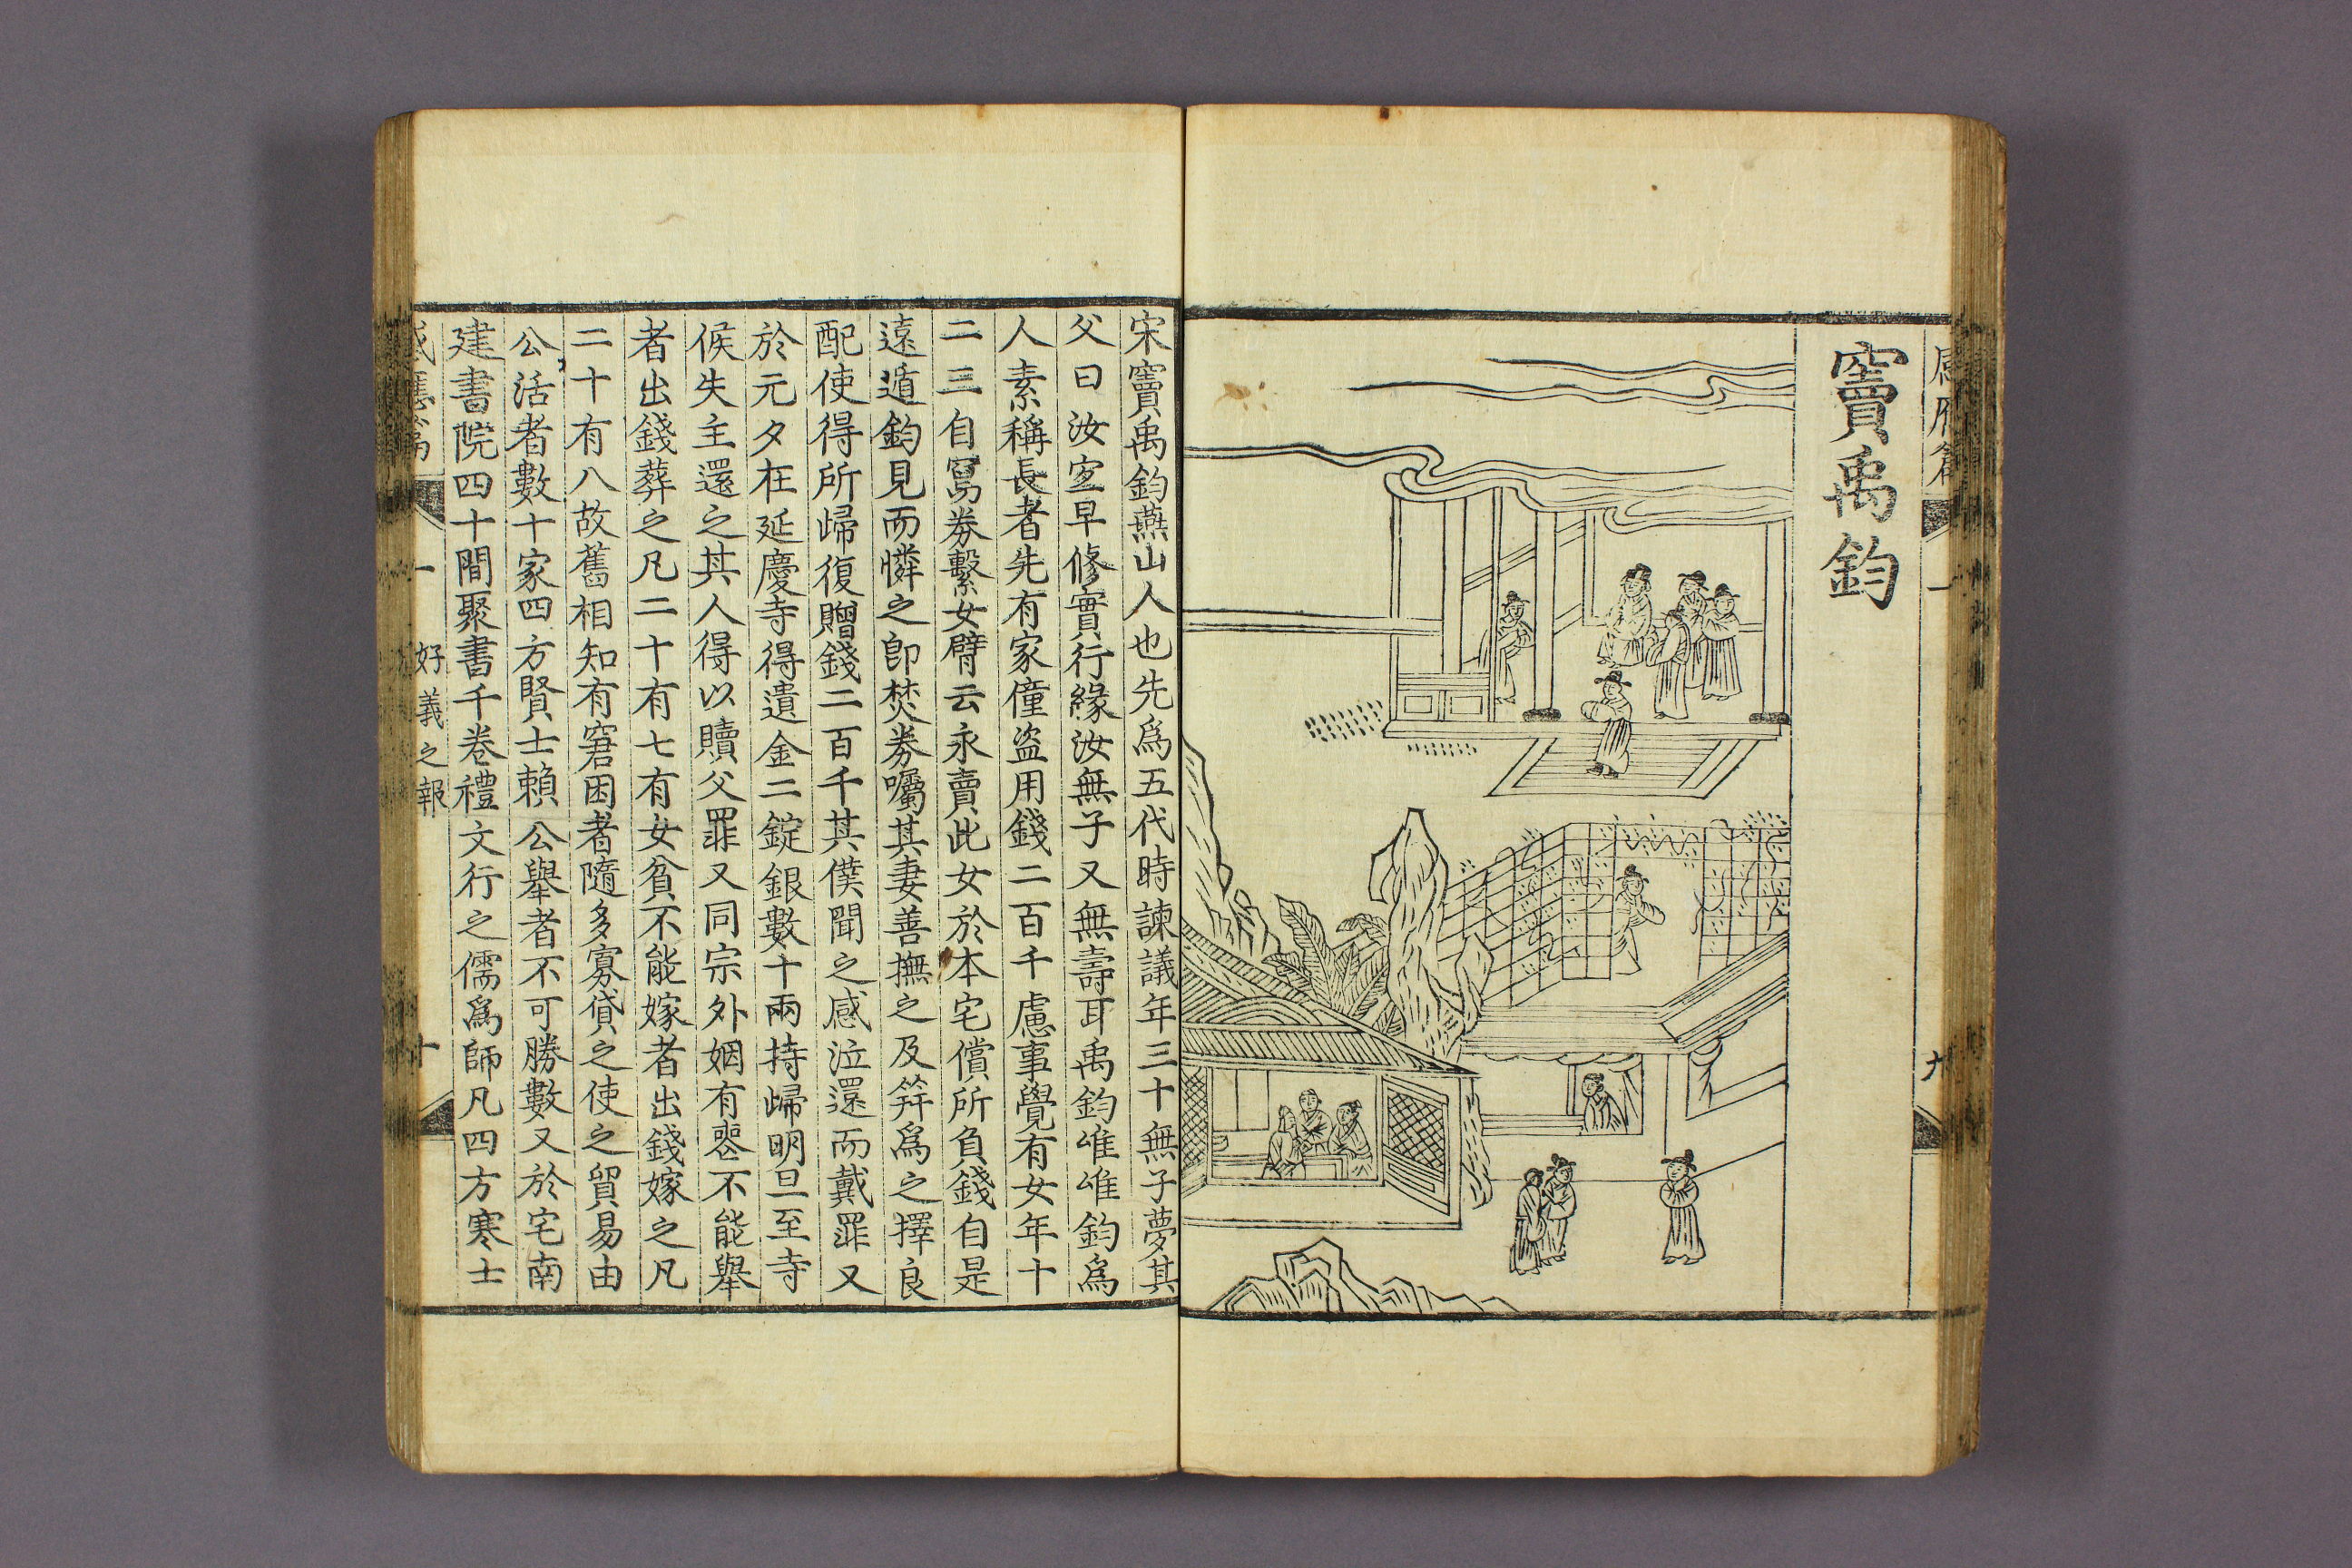 竇禹鈞
宋竇禹鈞燕山人也先爲五代時諫議年三十無子夢其
父曰汝宜早修實行緣汝無子又無壽耳禹鈞唯唯鈞爲
人素稱長者先有家僮盗用錢二百千慮事覺有女年十
二三自寫劵繫女臂云永賣此女於本宅償所負錢自是
遠遁鈞見而憐之卽焚劵囑其妻善撫之及筓爲之擇良
配使得所歸復贈錢二百千其僕聞之感泣還而戴罪又
於元夕在延慶寺得遺金二錠銀數十兩持歸明旦至寺
候失主還之其人得以贖父罪又同宗外姻有喪不能舉
者出錢葬之凡二十有七有女貧不能嫁者出錢嫁之凡
二十有八故舊相知有窘困者隨多寡貸之使之貿易由
公活者數十家四方賢士賴公舉者不可勝數又於宅南
建書院四十間聚書千卷禮文行之儒爲師凡四方寒士
感應篇 一 好義之報 十